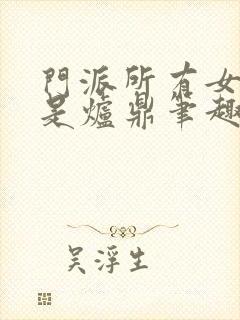 門派所有女
是爐鼎筆趣
吴浮生